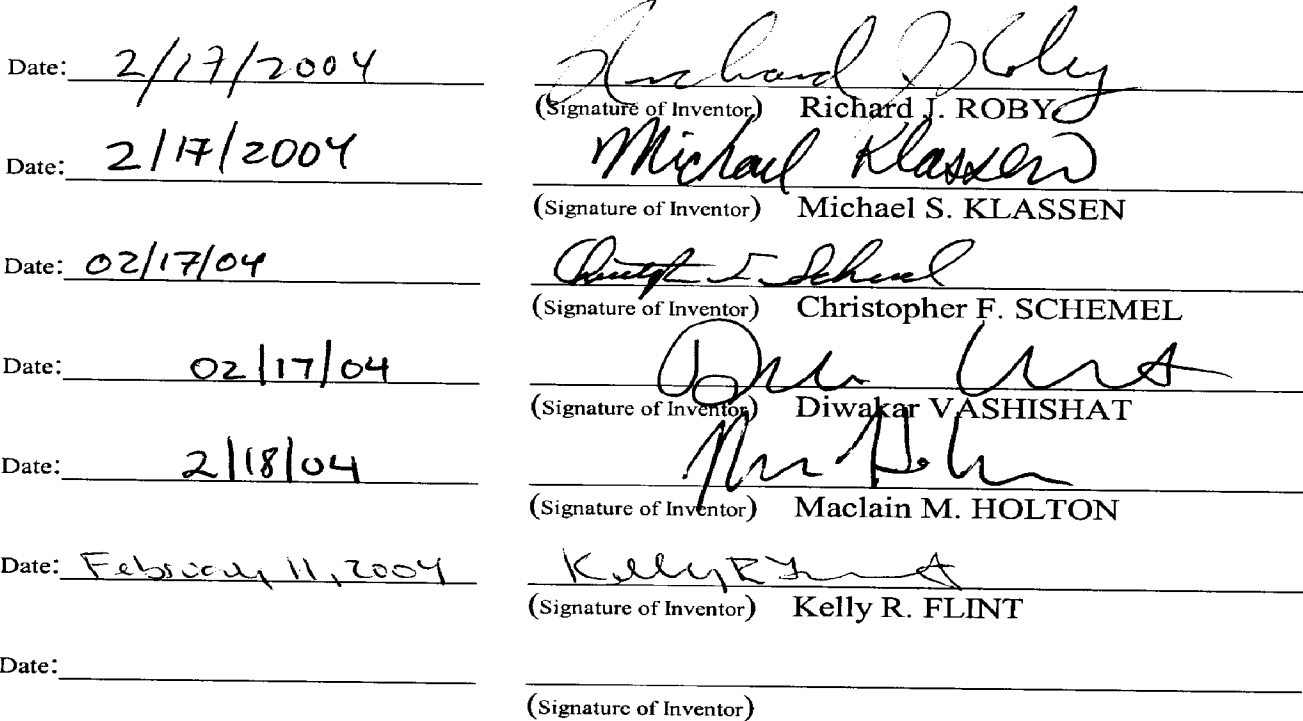 Date: 2/17/2004 Richard J Roby
(Signature of Inventor) Richard J. ROBY
Date: 2/17/2004 Michael Klassen
(Signature of Inventor) Michael S. KLASSEN
Date: 02/17/04
(Signature of Inventor) Christopher F. SCHEMEL
Date: 02/17/04
(Signature of Inventor) Diwakar VASHISHAT
Date: 2/18/04
(Signature of Inventor) Maclain M. HOLTON
Date: February 11, 2004 Kelly R Flint
(Signature of Inventor) Kelly R. FLINT
Date:
(Signature of Inventor)